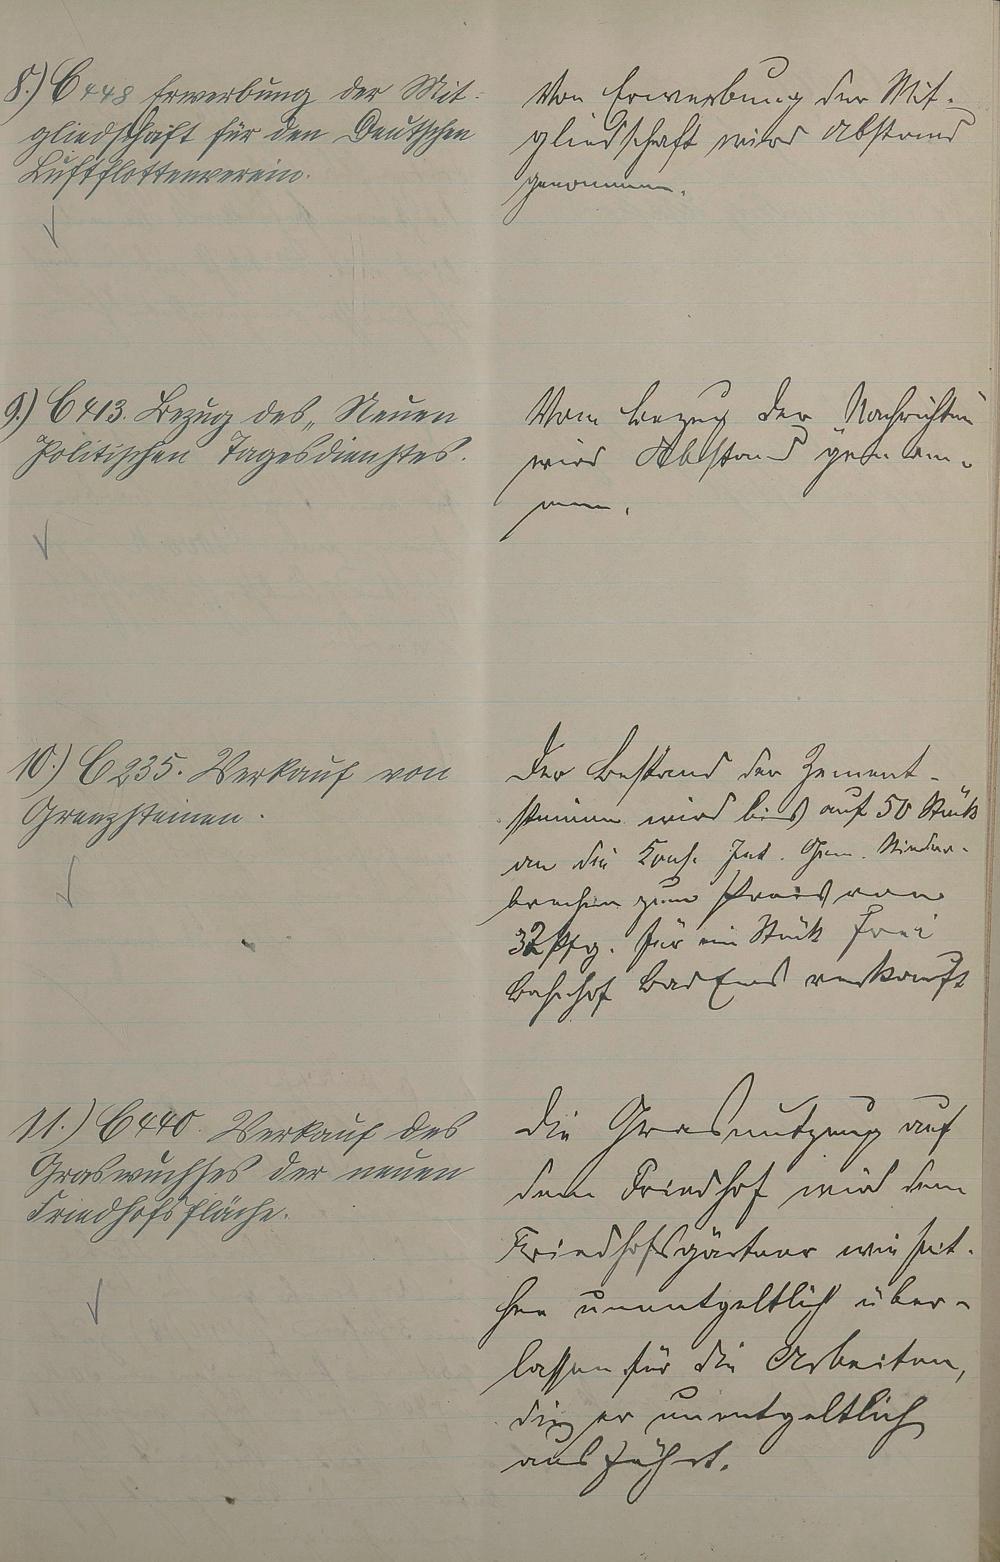 8.) C 448 Erwerbung der Mit-
gliedschaft für den Deutschen
Luftflottenverein.
Von Erwerbung der Mit-
gliedschaft wird Abstand
genommen.
9.) C 413. Bezug des „Neuen
Politischen Tagesdienstes.
Vom Bezug der Nachrichten
wird Abstand genom-
men.
10.) C 235. Verkauf von
Grenzsteinen.
Der Bestand der Zement-
steine wird bis auf 50 Stück
an die Kons. Int. Gem. Nieder-
brechen zum Preis von
32 Pfg. für ein Stück frei
Bahnhof Bad Ems verkauft
11.) C 440. Verkauf des
Graswuchses der neuen
Friedhofsfläche.
Die Grasnutzung auf
dem Friedhof wird dem
Friedhofsgärtner wie seit-
her unentgeltlich über-
lassen für die Arbeiten,
die er unentgeltlich
ausführt.